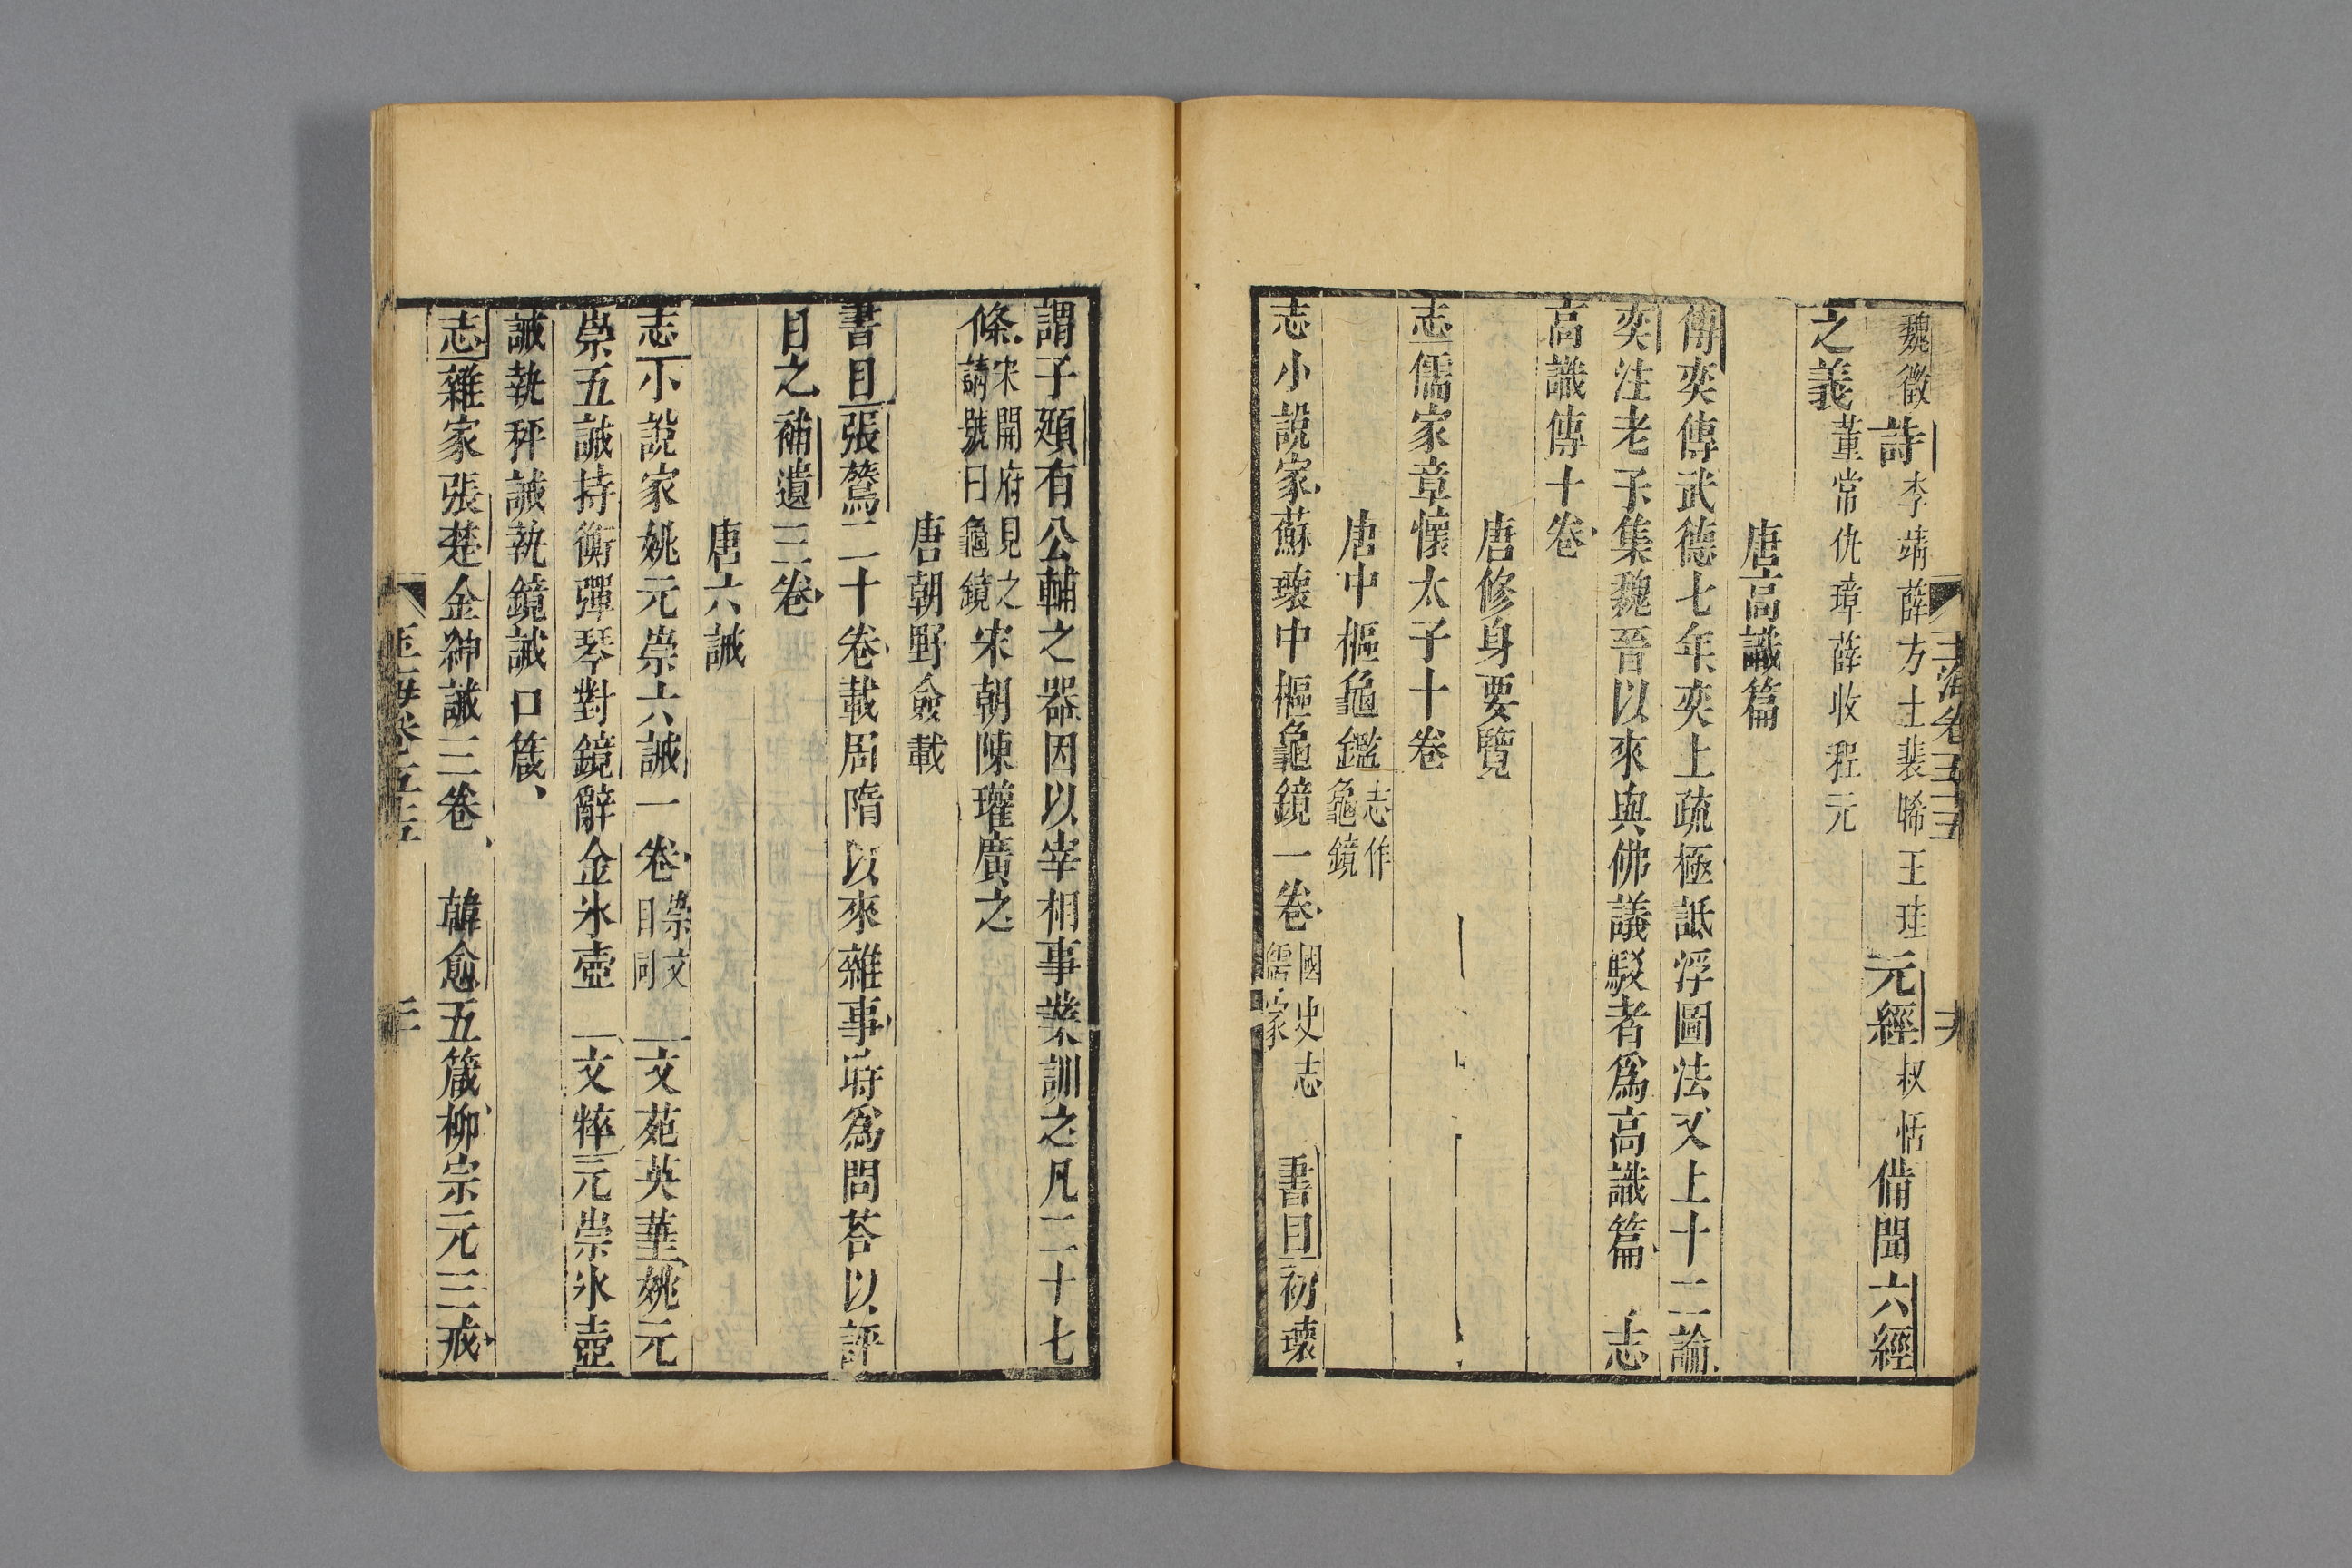 玉海卷五十五
魏徵詩李靖薛方士裴晞王珪元經叔恬備聞六經
之義董常仇璋薛收程元
唐高識篇
傅奕傳武德七年奕上疏極詆浮圖法又上十二論
奕注老子集魏晉以來與佛議駮者爲高識篇 志
高識傳十卷
唐修身要覽
志儒家章懷太子十卷
唐中樞龜鑑志作龜鏡
志小說家蘇瓌中樞龜鏡一卷國史志儒家 書目初瓌
謂子頲有公輔之器因以宰相事業訓之凡二十七
條宋開府見之請號曰龜鏡宋朝陳瓘廣之
唐朝野僉載
書目張鷟二十卷載周隋以來雜事時爲問荅以評
目之補遺三卷
唐六誡
志小說家姚元崇六誡一卷崇文目同 文苑英華姚元
崇五誡持衡彈琴對鏡辭金氷壺 文粹元崇氷壺
誡執秤誡執鏡誡口箴
志雜家張楚金紳誡三卷 韓愈五箴柳宗元三戒
玉海卷五十五